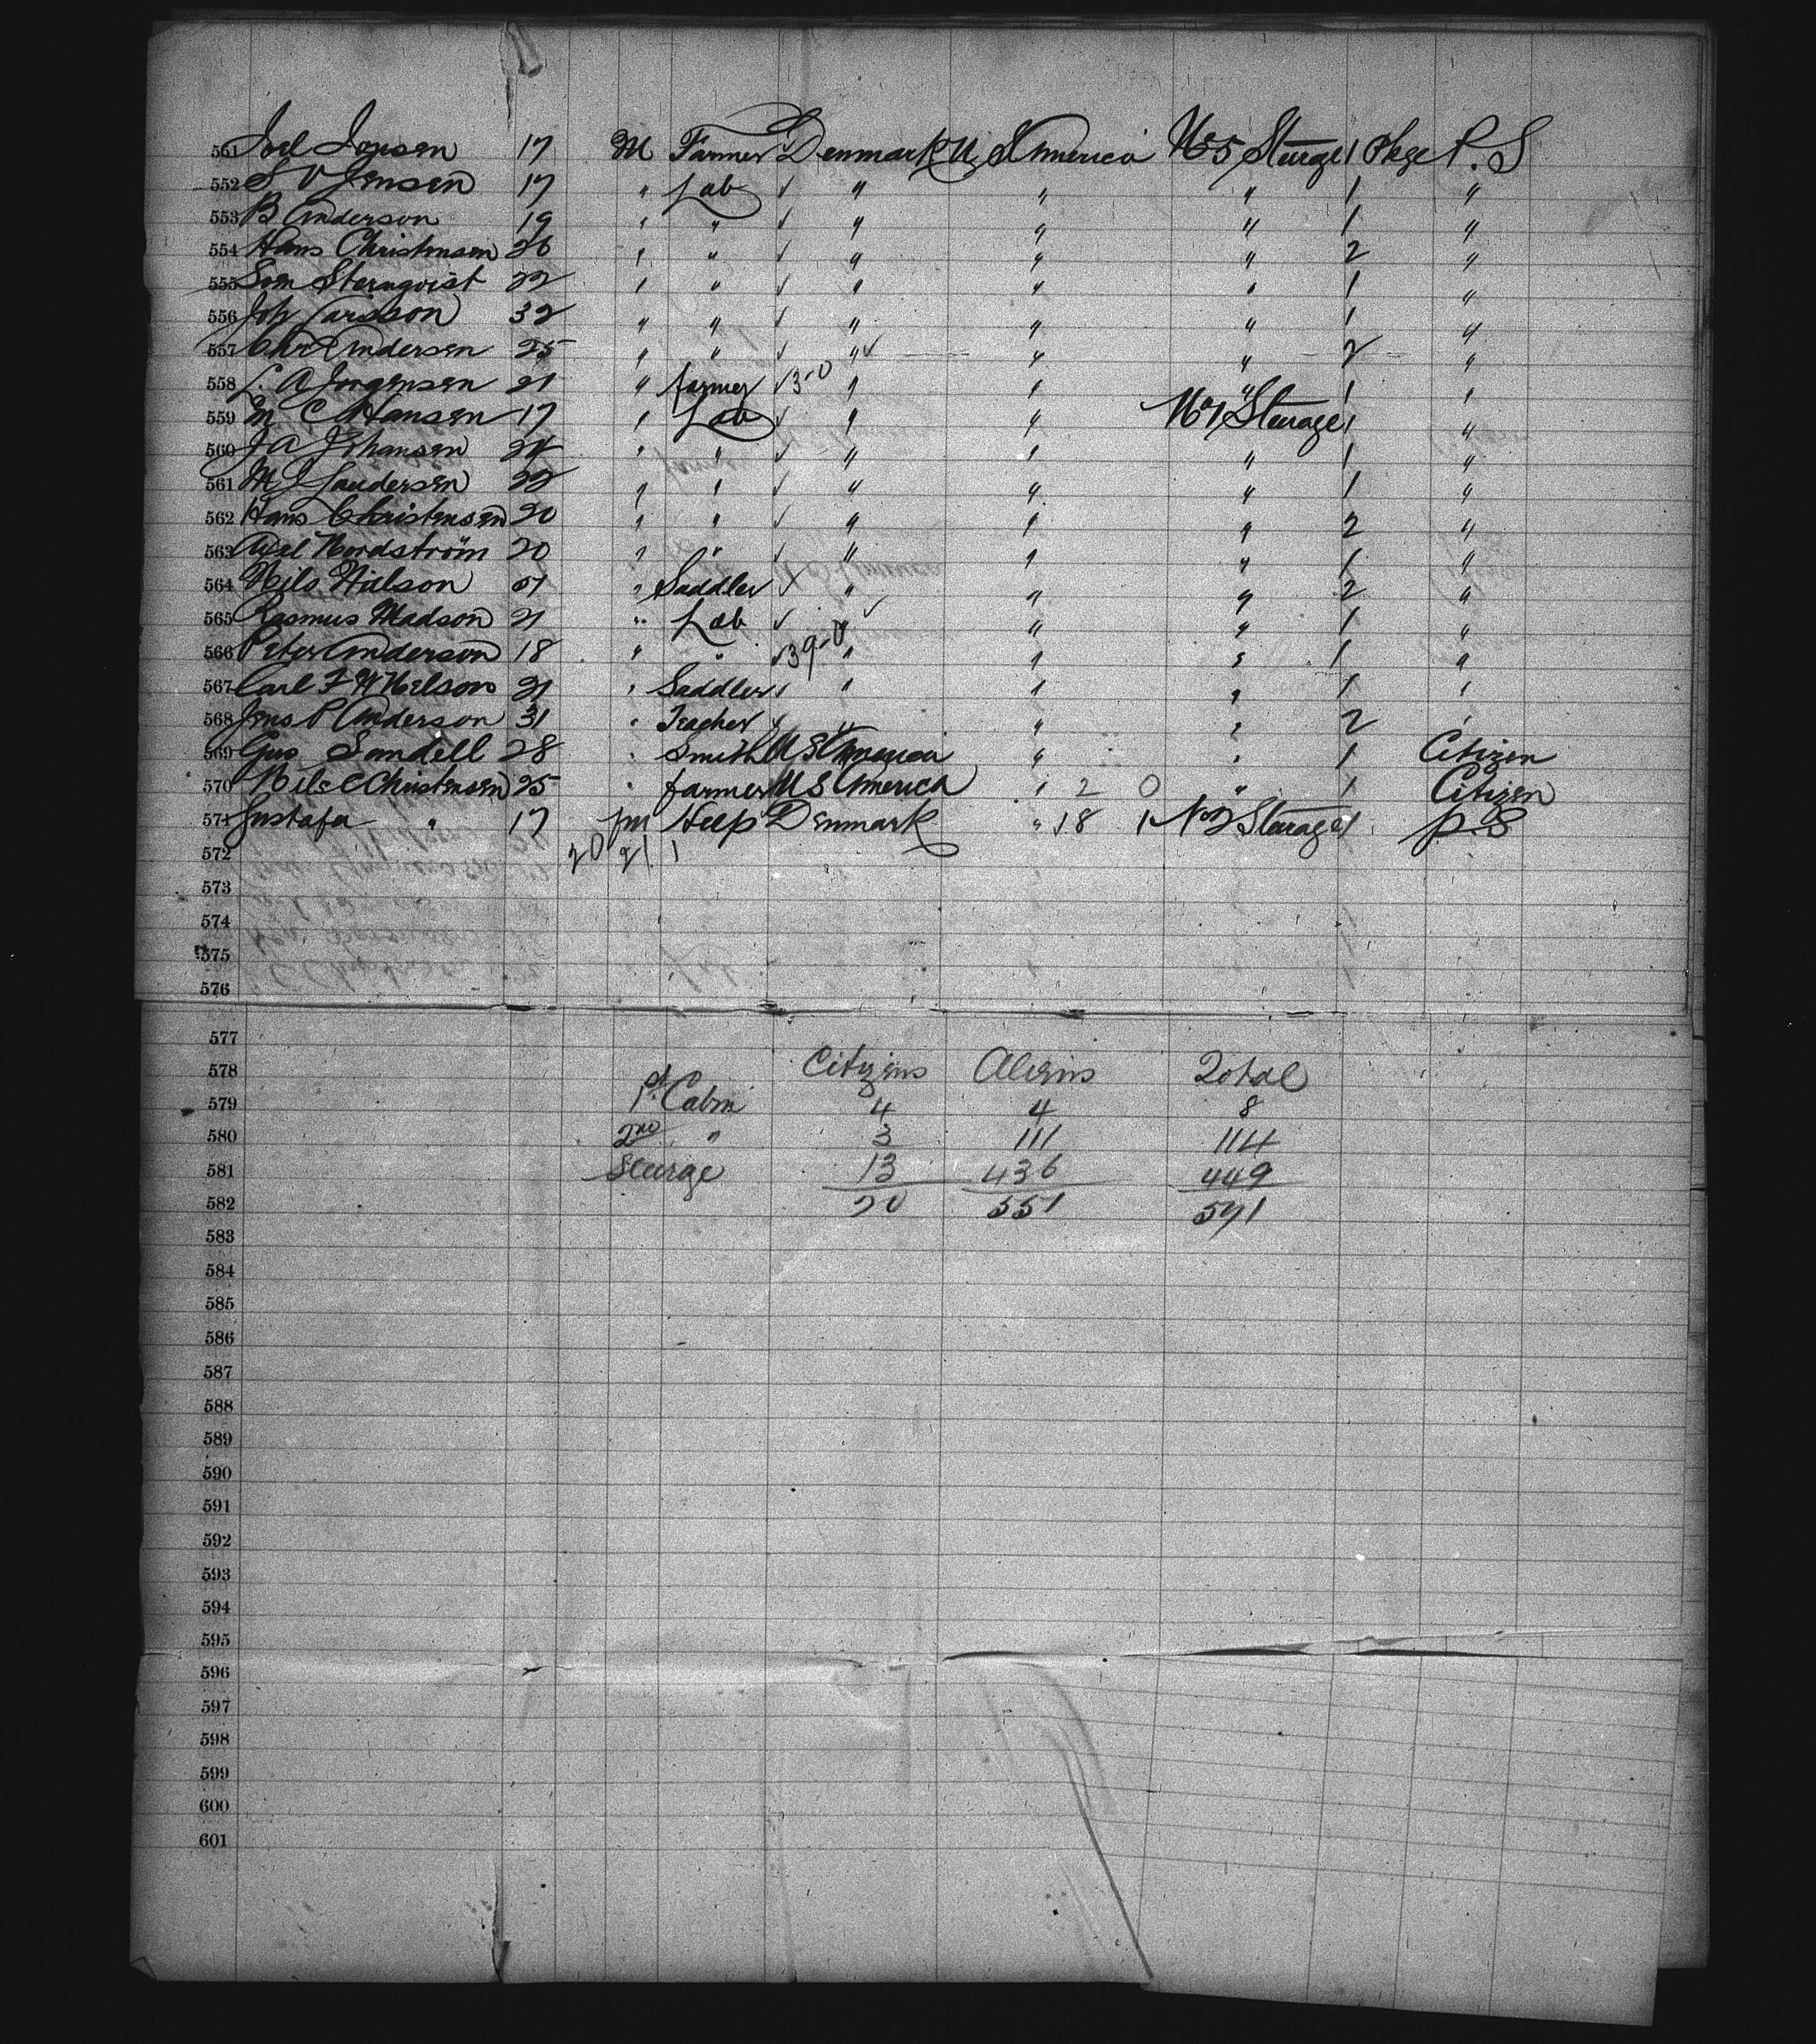 561 Joel Jonsen 17 M Farmer Denmark U S America No 5 Sturge 1 Pkge P. S
552 S V Jensen 17 " Lab ✓ " " " 1 "
553 B Anderson 19 " " ✓ " " " 1 "
554 Hans Christensen 26 " " ✓ " " " 2 "
555 Sven Sternqvist 22 " " ✓ " " " 1 "
556 Joh Carlsson 32 " " ✓ " " " 1 "
557 Chr Andersen 25 " " ✓ " ✓ " " 2 "
558 L. A Jorgensen 21 " farmer ✓ 3-0 " " " 1 "
559 M C Hansen 17 " Lab ✓ " " No 1 Sturage 1 "
560 J A Johansen 24 " " ✓ " " " 1 "
561 M J Saudersen 22 " " ✓ " " " 1 "
562 Hans Christensen 20 " " ✓ " " " 2 "
563 Axel Nordström 20 " " ✓ " " " 1 "
564 Nils Nielson 21 " Saddler ✓ " " " 2 "
565 Rasmus Madson 21 " Lab ✓ ✓ " " 1 "
566 Peter Anderson 18 " " ✓ 39-0 " " " 1 "
567 Carl F W Nelson 21 " Saddler " " " " 1 "
568 Jens P Anderson 31 " Teacher " " " " 2 "
569 Gus Sandell 28 " Smith U S America " " 1 Citizen
570 Nils C Christensen 25 " farmer U S America " 2 0 " 1 Citizen
571 Gustafa " 17 fm Help Denmark " ✓ 18 1 No 2 Sturage 1 P. S
572 20 21 1
573
574
575
576
577
578 Citizens Aliens Total
579 1st Cabin 4 4 8
580 2nd " 3 111 114
581 Sturge 13 436 449
582 20 551 571
583
584
585
586
587
588
589
590
591
592
593
594
595
596
597
598
599
600
601